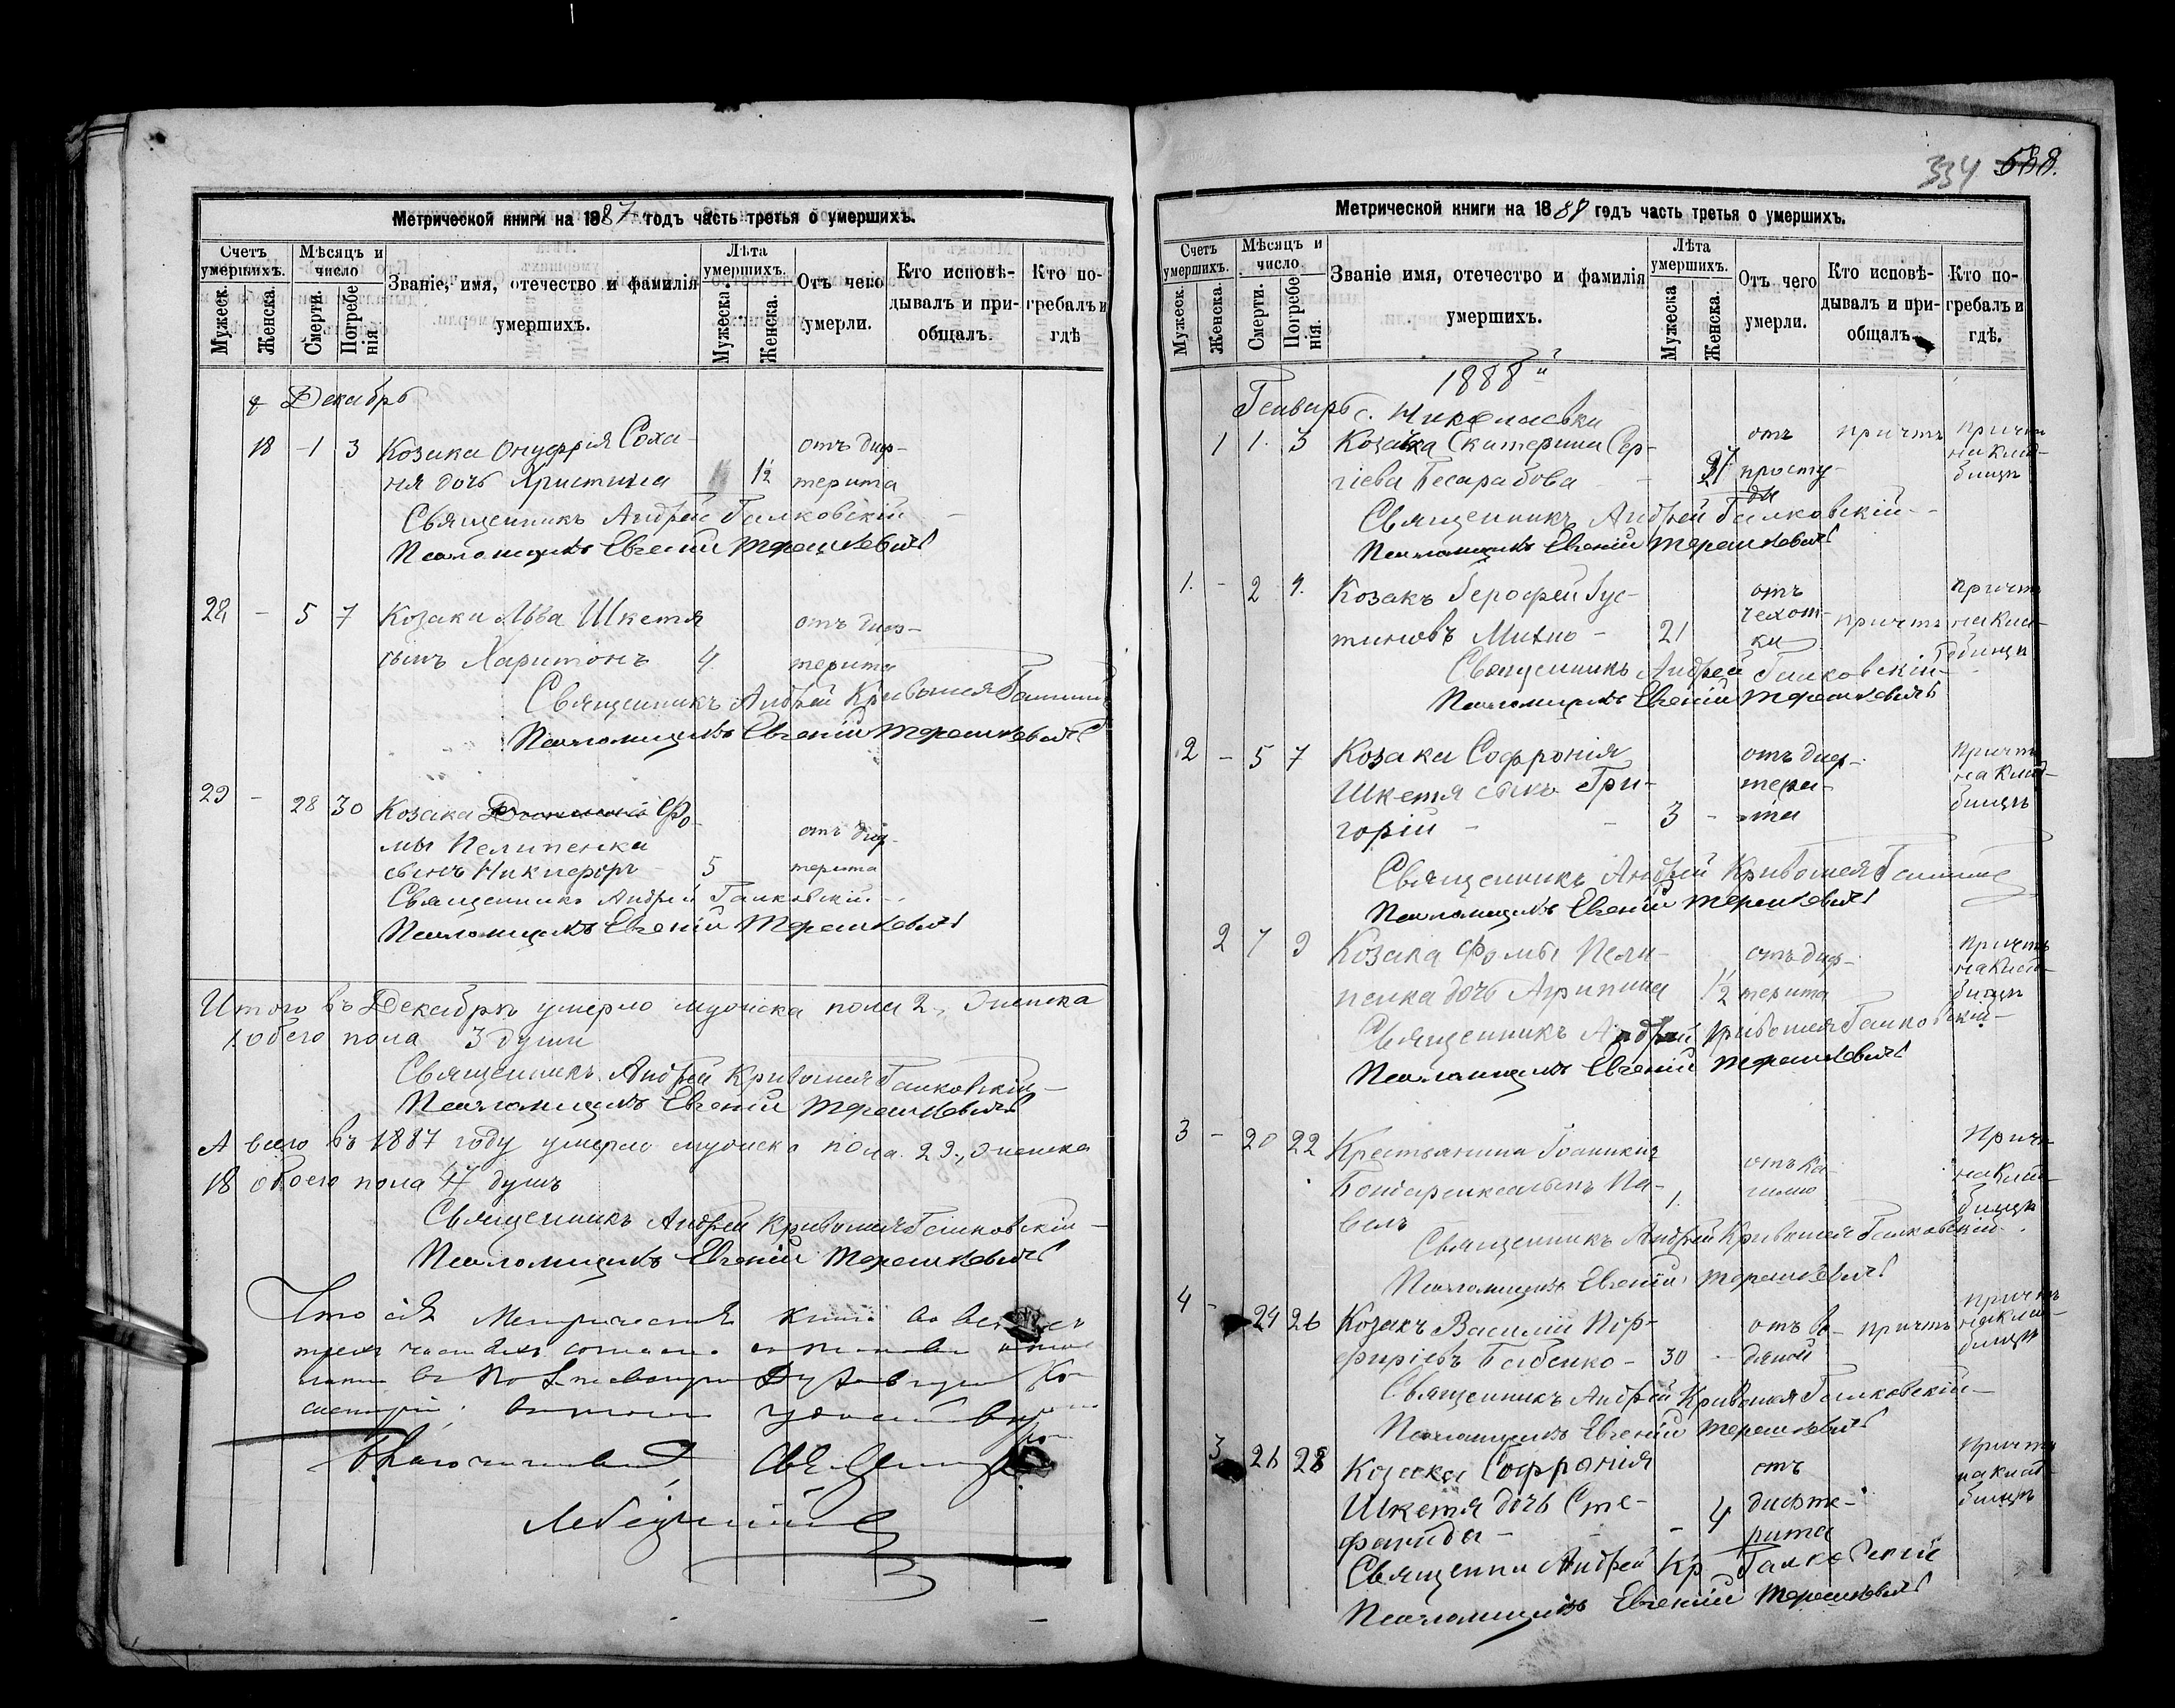 Метрической книги на 1887 годъ часть третья о умершихъ.
Счетъ умершихъ.
Мужеск.
Женска.
Мѣсяцъ и число
Смерти.
Погребенія
Званіе, имя, отечество и фамилія умершихъ.
Лѣта умершихъ.
Мужеска.
Женска.
Отъ чего умерли.
Кто исповѣдывалъ и приобщалъ.
Кто погребалъ и гдѣ
Декабрь
18 - 1 3 Козака Онуфрія Соха- отъ диф-
ня дочь Христина 1½ терита
Священникъ Андрей Галковскій
Псаломщикъ Евгеній Терешкевичъ
28 - 5 7 Козака Льва Шкетя отъ диф-
сынъ Харитонъ 4 терита
Священникъ Андрей Кривошея
Псаломщикъ Евгеній Терешкевичъ
29 - 28 30 Козака Фо-
мы Пелипенка отъ диф-
сынъ Никифоръ 5 терита
Священникъ Андрей Галковскій
Псаломщикъ Евгеній Терешкевичъ
Итого въ Декабрѣ умерло мужска пола 2, женска
1. обоего пола 3 души
Священникъ Андрей Кривошея Галковскій
Псаломщикъ Евгеній Терешкевичъ
А всего въ 1887 году умерло мужска пола 29., женска
18 обоего пола 47 душъ
Священникъ Андрей Кривошея Галковскій
Псаломщикъ Евгеній Терешкевичъ
Что сія Метрическая книга во всѣхъ
трехъ частяхъ
въ Духовную Ко-
систорію
Благочинный Священникъ
334 588.
Метрической книги на 1888 годъ часть третья о умершихъ.
Счетъ умершихъ.
Мужеск.
Женска.
Мѣсяцъ и число
Смерти.
Погребенія.
Званіе имя, отечество и фамилія умершихъ.
Лѣта умершихъ.
Мужеска
Женска.
Отъ чего умерли.
Кто исповѣдывалъ и приобщалъ.
Кто погребалъ и гдѣ.
1888й
Генварь с. Николаевки
1 1. 3 Козачка Екатерина Сер- отъ причтъ причтъ
гіева Бесарабова простуды на кладбищѣ
Священникъ Андрей Галковскій
Псаломщикъ Евгеній Терешкевичъ
1. - 2 4. Козакъ Герофей Гус- отъ причтъ
тиновъ Михно - 21 чехотки причтъ на кладбищѣ
Священникъ Андрей Галковскій
Псаломщикъ Евгеній Терешкевичъ
2 - 5 7 Козака Софронія отъ диф- причтъ
Шкетя сынъ Гри- тери- на клад-
горій - 3 - та бищѣ
Священникъ Андрей Кривошея
Псаломщикъ Евгеній Терешкевичъ
2 7 9 Козака Фомы Пели- отъ диф- причтъ
пенка дочь Агрипина ½ терита на кладбищѣ
Священникъ Андрей Кривошея Галковскій
Псаломщикъ Евгеній Терешкевичъ
3 - 20 22 Крестьянина Іоаникія Причтъ
Бондаренка сынъ Па- 1. отъ ка- на клад-
велъ шлю бищѣ
Священникъ Андрей Кривошея Галковскій
Псаломщикъ Евгеній Терешкевичъ
4 - 24 26 Козакъ Василій Пор- отъ во- причтъ причтъ на клад-
фиріевъ Бабенко - 30 - дяной бищѣ
Священникъ Андрей Кривошея Галковскій
Псаломщикъ Евгеній Терешкевичъ
3 26 28 Козака Софронія отъ причтъ
Шкетя дочь Сте- 4 дифте- на клад-
фанида - рита бищѣ
Андрей Кр Галковскій
Псаломщикъ Евгеній Терешкевичъ